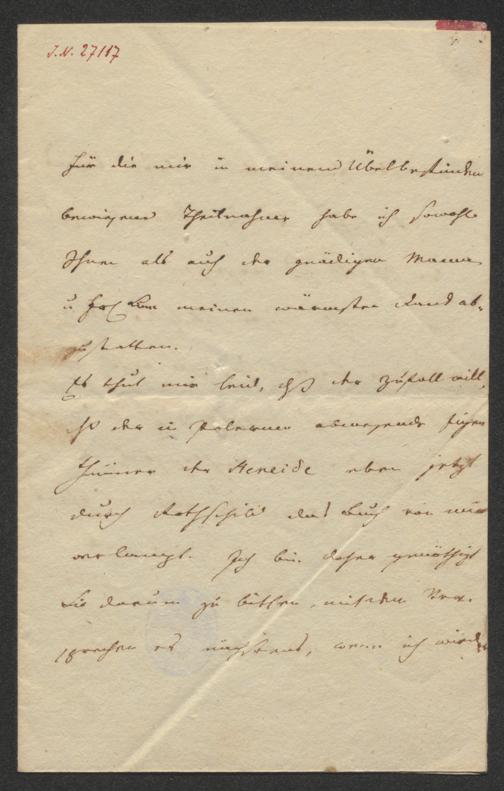 I.N. 27117
für die mir in meinem Übelbefinden
bewiesene Theilnahme habe ich sowohl
Ihnen als auch der gnädigen Mama
u. meinen wärmsten Dank ab-
zustatten.
Es thut mir leid, daß der Zufall will,
daß der in Palermo abwesende Eigen-
thümer der Aeneide eben jetzt
durch Rothschild das Buch von mir
verlangt. Ich bin daher genöthigt
Sie darum zu bitten, mit dem Ver-
sprechen es nächstens, wenn ich wieder